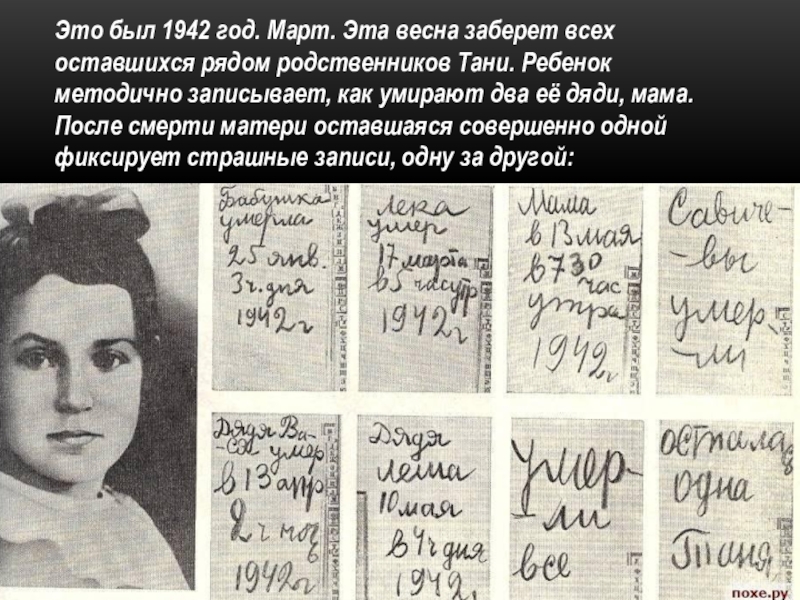 Это был 1942 год. Март. Эта весна заберет всех
оставшихся рядом родственников Тани. Ребенок
методично записывает, как умирают два её дяди, мама.
После смерти матери оставшаяся совершенно одной
фиксирует страшные записи, одну за другой:
Бабушка
умерла
25 янв.
3 ч. дня
1942 г
лека
умер
17 марта
в 5 час утр
1942 г
Мама
в 13 мая
в 7 30
час
утра
1942 г
Савиче-
-вы
умер-
-ли
Дядя Ва-
-ся умер
в 13 апр
2 ч ноч
1942 г
Дядя
леша
10 мая
в 4 ч дня
1942 г
умер-
-ли
все
осталась
одна
Таня
похе.ру